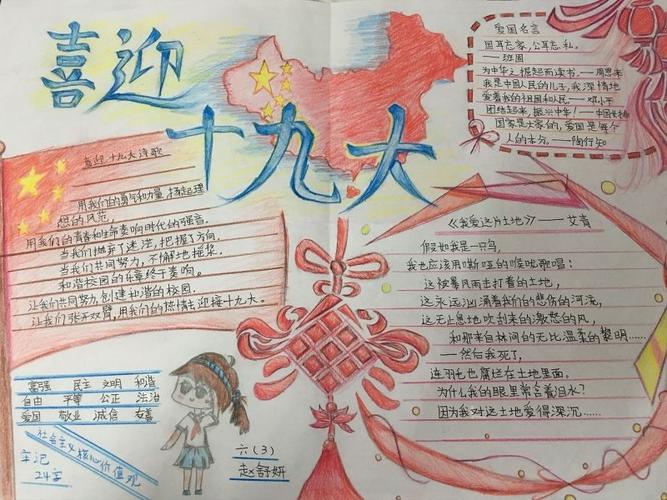 喜迎
十九大
爱国名言
国耳忘家,公耳忘私。
——班固
为中华之崛起而读书。——周恩来
我是中国人民的儿子,我深情地
爱着我的祖国和人民——邓小平
团结起来,振兴中华!
国家是大家的,爱国是每个
人的本分。——陶行知
喜迎十九大诗歌
用我们的勇气和力量,扬起理
想的风范,
用我们的青春和生命奏响时代的强音,
当我们抛弃了迷茫,把握了方向,
当我们共同努力,不懈地摇桨,
和谐校园的乐章终于奏响。
让我们共同努力,创建和谐的校园,
让我们张开双臂,用我们的热情去迎接十九大。
《我爱这片土地》——艾青
假如我是一只鸟,
我也应该用嘶哑的喉咙歌唱:
这被暴风雨击打着的土地,
这永远汹涌着我们的悲伤的河流,
这无止息地吹刮来的激怒的风,
和那来自林间的无比温柔的黎明……
——然后我死了,
连羽毛也腐烂在土地里面。
为什么我的眼里常含着泪水?
因为我对这土地爱得深沉……
富强 民主 文明 和谐
自由 平等 公正 法治
爱国 敬业 诚信 友善
社会主义核心价值观
牢记
24字
六(3)
赵舒妍